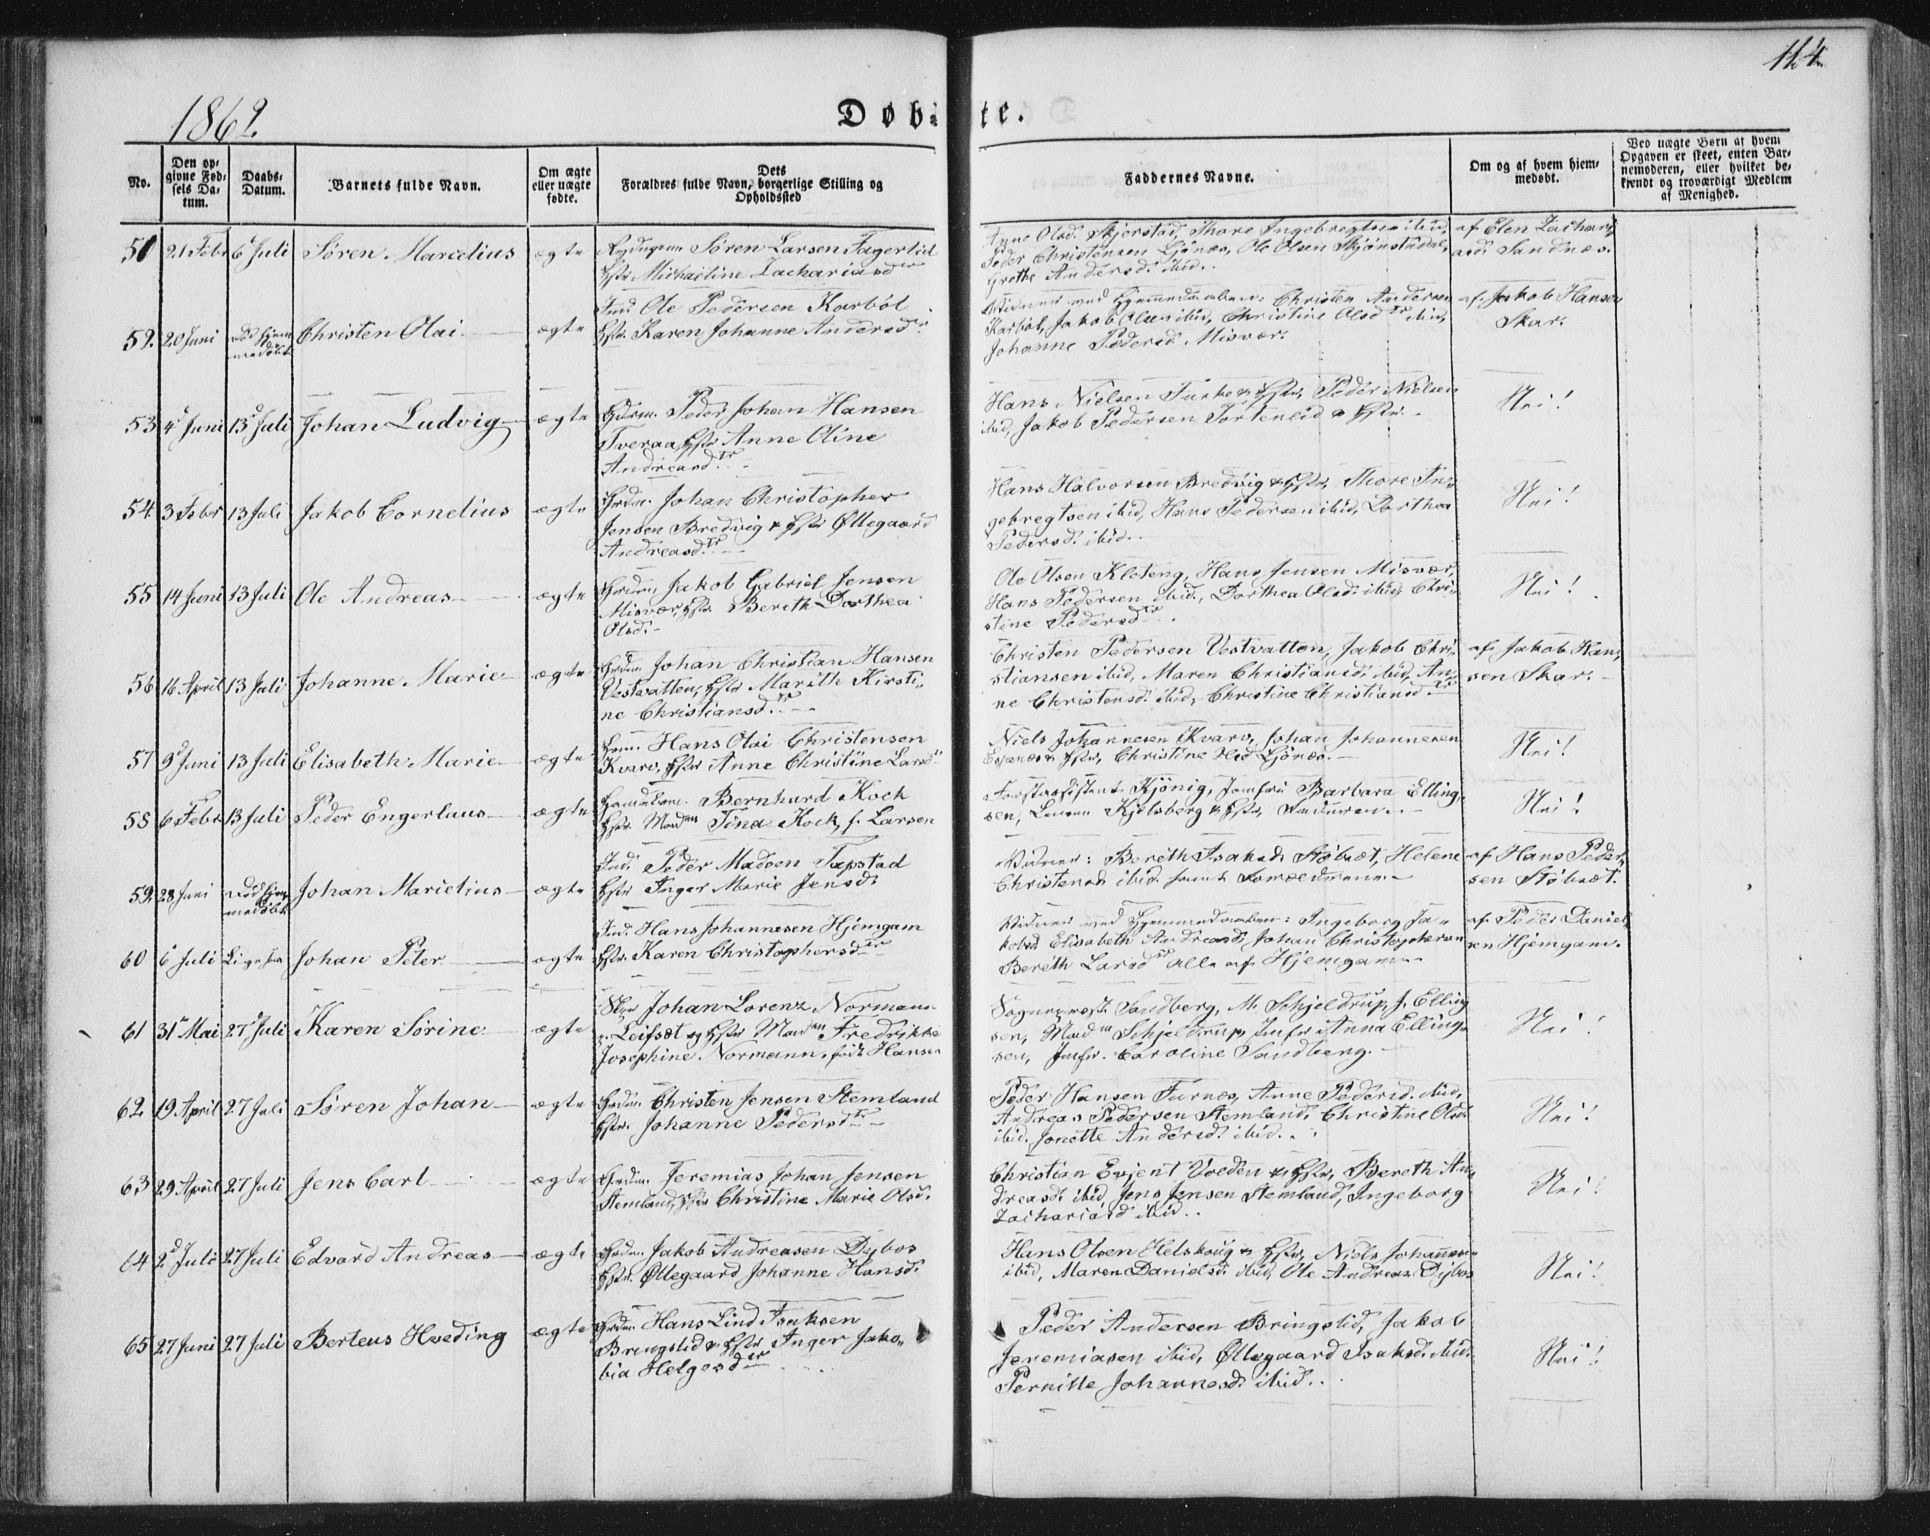 114.
1862.
Døbte.
No.
Den opgivne Fødsels Datum.
Daabs-Datum.
Barnets fulde Navn.
Om ægte eller uægte fødte.
Dets Forældres fulde Navn, borgerlige Stilling og Opholdssted
Faddernes Navne.
Om og af hvem hjemmedøbt.
Ved uægte Børn af hvem Opgaven er skeet, enten Barnemoderen, eller hvilket bekjendt og troværdigt Medlem af Menighed.
51 21 Febr 6 Juli Søren Marcelius ægte
Søren Larsen Fagerlid
Hstr Michaeline Zachariasdtr
Anne Olsd. Skjerstad, Thore Ingebregtsen ibid,
Peder Christensen Ljønes, Ole Olsen Skjønstudal,
Grethe Andersd. ibid.
af Elen Zachari
asd. Sandnæs.
52. 20 Juni Død hjem
medøbt Christen Olai ægte
Ind. Ole Pedersen Karbøl
Hstr Karen Johanne Andersd.
Vidner med Hjemmedaaben: Christen Andersen
Karbøl, Jakob Olsen ibid, Christine Olsdtr ibid,
Johanne Pedersd. Misvær.
af Jakob Hansen
Skar.
53 4 Juni 13 Juli Johan Ludvig ægte
Grdm. Peder Johan Hansen
Tveraa, Hstr Anne Oline
Andreasdtr
Hans Nielsen & Hstr, Peder Nielsen
ibid, Jakob Pedersen Tortenlid & Hstr.
Nei!
54. 3 Febr 13 Juli Jakob Cornelius ægte
Grdm. Johan Christopher
Jensen Bredvig & Hstr Øllegaard
Andreasdtr
Hans Halvorsen Bredvig & Hstr, Thore In-
gebregtsen ibid, Hans Pedersen ibid, Dorthea
Pedersd. ibid.
Nei!
55 14 Juni 13 Juli Ole Andreas ægte
Grdm. Jakob Gabriel Jensen
Misvær, Hstr Bereth Dorthea
Olsd.
Ole Olsen Kloteng, Hans Jensen Misvær,
Hans Pedersen ibid, Dorthea Olsd. ibid, Chri-
stine Pedersdtr
Nei!
56 16 April 13 Juli Johanne Marie ægte
Grdm. Johan Christian Hansen
Vestvatten, Hstr Marith Kirsti-
ne Christiansdtr
Christen Pedersen Vestvatten, Jakob Chri-
stiansen ibid, Maren Christiansd. ibid, An-
ne Christensd. ibid, Christine Christiansdtr
af Jakob Han-
sen Skar.
57 9 Juni 13 Juli Elisabeth Marie ægte
Hans Olai Christensen
Kvarv, Hstr Anne Christine Larsd.
Niels Johannesen Kvarv, Johan Johannesen
Evjenes & Hstr, Christine Ljønes.
Nei!
58 6 Febr 13 Juli Peder Engerluus ægte
Bernhard Kock
Hstr Madm Tina Kock, f. Larsen
Forstassistent Kjønig, Jomfru Barbara Elling-
sen, Kjelsberg & Hstr, Faderen.
Nei!
59. 28 Juni Død hjem
medøbt Johan Marielius ægte
Ind. Peder Madsen Tapstad
Hstr Inger Marie Jensd.
Vidner: Bereth Isaksd. Støbset, Helene
Christensd. ibid. samt Forældrene.
af Hans Peder-
sen Støbset.
60 6 Juli Ligesaa Johan Peter ægte
Ind. Hans Johannesen Hjemgam
Hstr Karen Christophersdtr
Vidner med Hjemmedaaben: Ingeborg Ja-
kobsd. Elisabeth Andreasd., Johan Christophersen
Bereth Larsdtr alle af Hjemgam.
af Peder Daniel-
sen Hjemgam.
61 31 Mai 27 Juli Karen Sørine ægte
Johan Lorenz Normann
Leifset og Hstr Madm Fredrikke
Josephine Normann, født Hansen
Sogneprest Sandberg, M. Schjeldrup, J. Elling
sen, Madm Schjeldrup, Jmfr Anna Elling-
sen, Jmfr. Caroline Sandberg.
Nei!
62. 19 April 27 Juli Søren Johan ægte
Grdm. Christen Jensen Stemland
Hstr. Johanne Pedersdtr
Peder Hansen Furnes, Anne Pedersd. ibid,
Andreas Pedersen Stemland, Christine Olsd.
ibid. Jonette Andersd. ibid.
Nei!
63 29 April 27 Juli Jens Carl ægte
Grdm. Jeremias Johan Jensen
Stemland, Hstr Christine Marie Olsd.
Christian Evjent Volden & Hstr, Bereth An-
dreasd. ibid, Jens Jensen Stemland, Ingeborg
Zachariasd ibid.
Nei!
64 2 Juli 27 Juli Edvard Andreas ægte
Grdm. Jakob Andreasen Dybos
Hstr. Øllegaard Johanne Hansd.
Hans Olsen Helskoug & Hstr, Niels Johannesen
ibid, Maren Danielsd. ibid, Ole Andreas. Dybos
Nei!
65 27 Juni 27 Juli Berteus Hveding ægte
Grdm. Hans Lind Isaksen
Bringslid & Hstr Inger Jako-
bia Helgesdtr
Peder Andersen Bringslid, Jakob
Jeremiasen ibid, Øllegaard Isaksd. ibid.
Pernille Johannesd. ibid.
Nei!